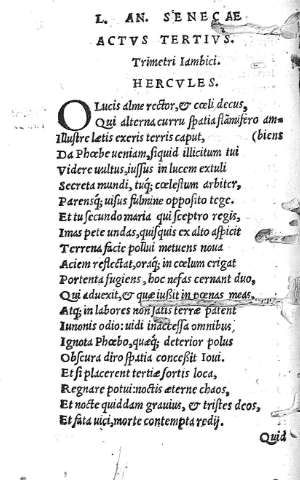 L. AN. SENECAE
ACTVS TERTIVS.
Trimetri Iambici.
HERCVLES.
O Lucis alme rector, & cœli decus,
Qui alterna curru spatia flãmifero am-
Illustre lætis exeris terris caput, (biens
Da Phœbe ueniam, siquid illicitum tui
Videre uultus, iussus in lucem extuli
Secreta mundi, tuq; cœlestum arbiter,
Parensq; uisus fulmine opposito tege.
Et tu secundo maria qui sceptro regis,
Imas pete undas, quisquis ex alto aspicit
Terrena facie pollui metuens noua
Aciem reflectat, oraq; in cœlum erigat
Portenta fugiens, hoc nefas cernant duo,
Qui aduexit, & quæ iussit in pœnas meas.
Atq; in labores non satis terræ patent
Iunonis odio: uidi inaccessa omnibus
Ignota Phœbo, quæq; deterior polus
Obscura diro spatia concessit Ioui.
Et si placerent tertiæ sortis loca,
Regnare potui: noctis æterne chaos,
Et nocte quiddam grauius, & tristes deos,
Et fata uici, morte contempta redij.
Quid